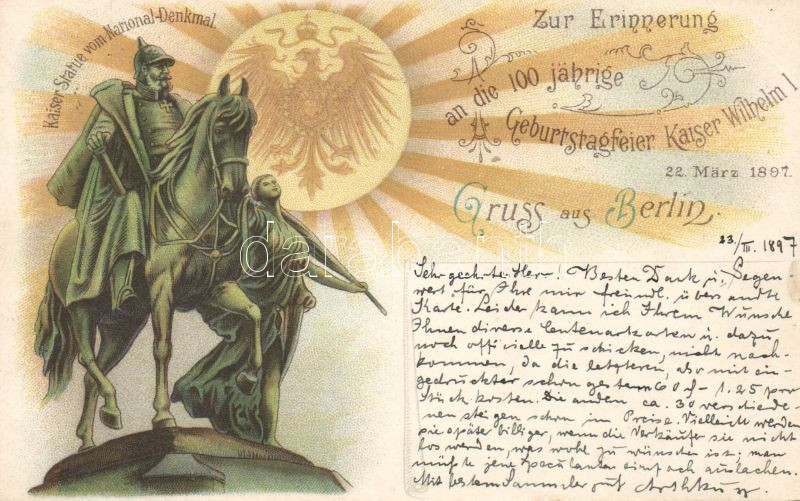 Kaiser-Statue vom National-Denkmal.
Zur Erinnerung
an die 100 jährige
Geburtstagfeier Kaiser Wilhelm I
22. März 1897.
Gruss aus Berlin.
23/III. 1897
Sehr geehrter Herr! Besten Dank u.
für Ihre mir freundl. übersandte
Karte. Leider kann ich Ihrem Wunsche
Ihnen diverse Centenarkarten u. dazu
noch officielle zu schicken, nicht nach-
kommen, da die letzteren, also mit ein-
gedruckter schon gestern 60 d - 1.25 pro
Stück kosten. Die anderen ca. 30 verschiede-
nen steigen schon im Preise. Vielleicht werden
sie später billiger, wenn die Verkäufer sie nicht
los werden, was wohl zu wünschen ist; man
müsste jene Speculanten einfach auslachen.
Mit bestem Sammler
darabanth